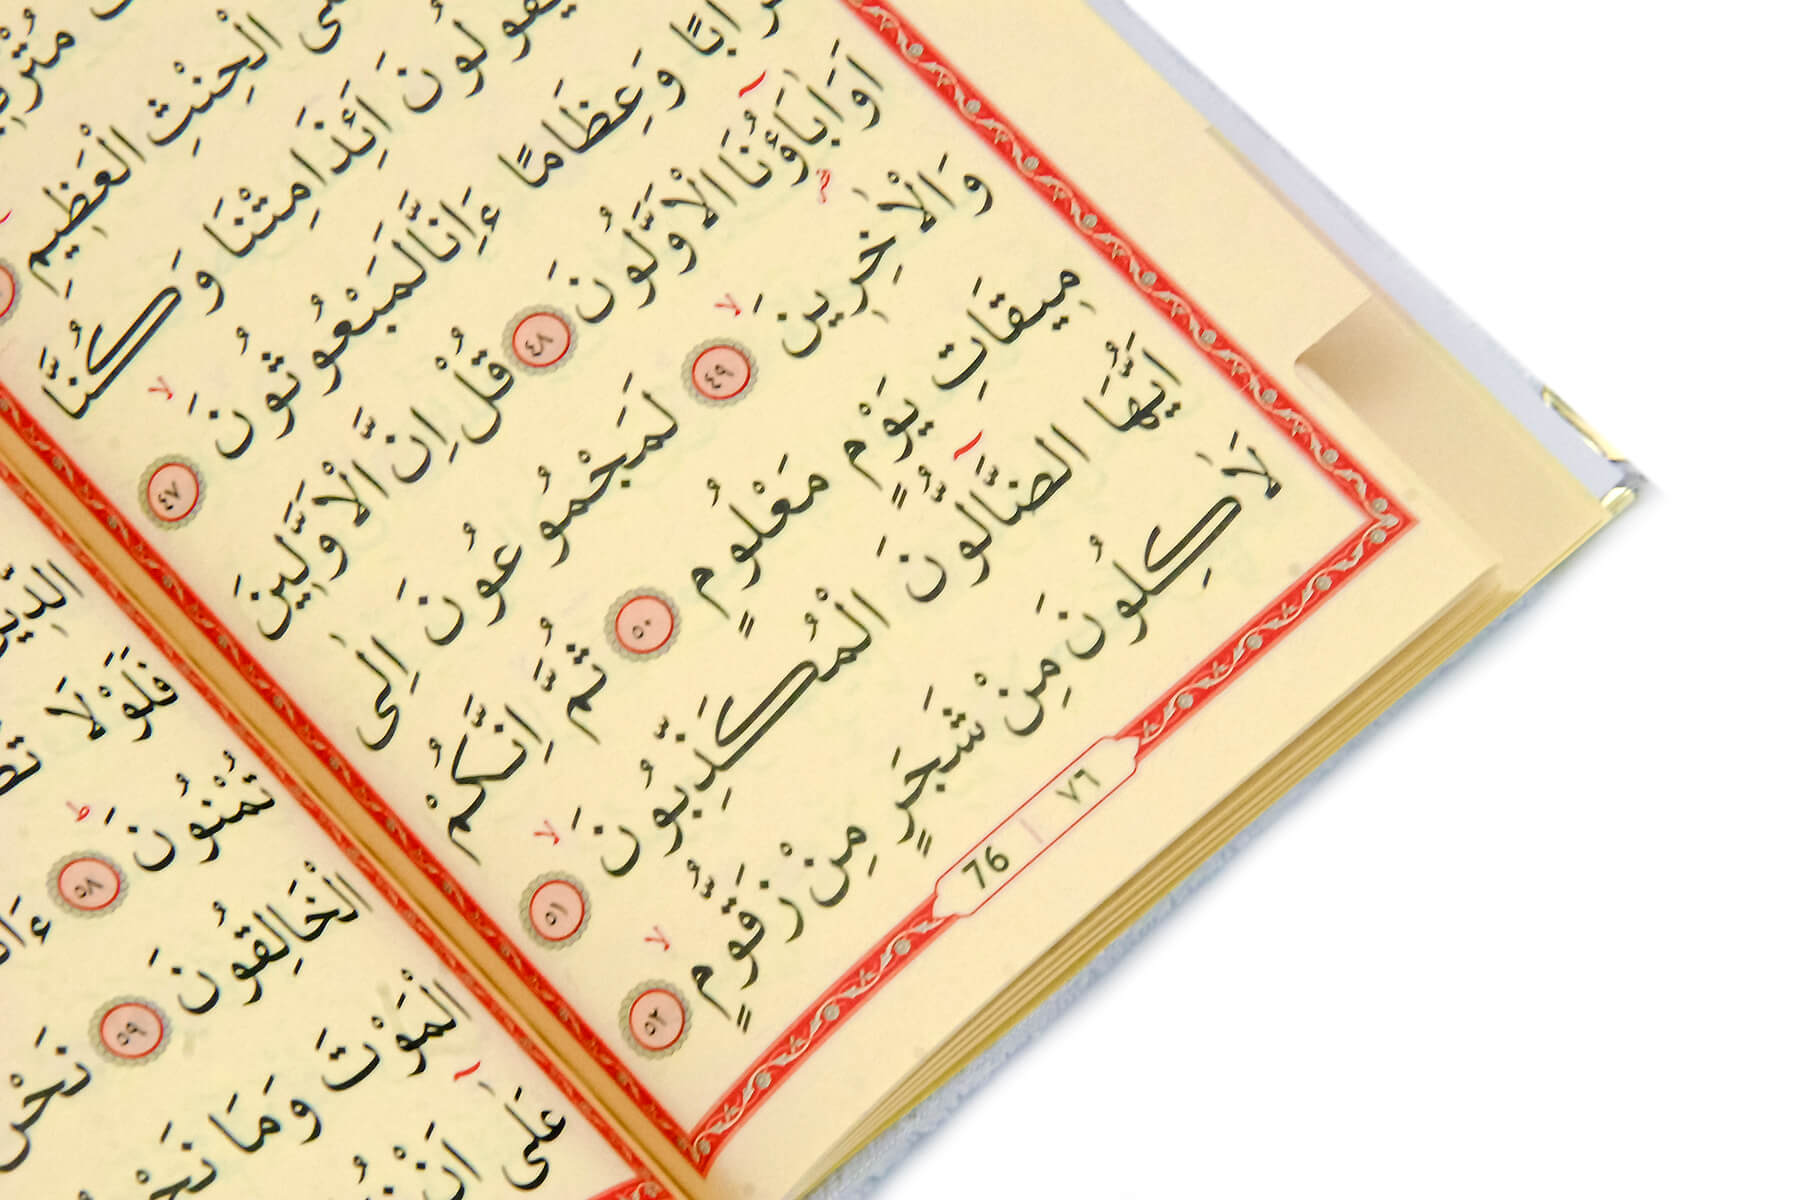 الْحِنْثِ الْعَظِيمِ
يَقُولُونَ اَئِذَا مِتْنَا وَكُنَّا
تُرَابًا وَعِظَامًا ءَاِنَّا لَمَبْعُوثُونَ ٤٧
اَوَاٰبَاؤُ۬نَا الْاَوَّلُونَ ٤٨ قُلْ اِنَّ الْاَوَّلِينَ
وَالْاٰخِرِينَ ٤٩ لَمَجْمُوعُونَ اِلٰى
مِيقَاتِ يَوْمٍ مَعْلُومٍ ٥٠ ثُمَّ اِنَّكُمْ
اَيُّهَا الضَّالُّونَ الْمُكَذِّبُونَ ٥١
لَاٰكِلُونَ مِنْ شَجَرٍ مِنْ زَقُّومٍ ٥٢
76 | ٧٦
فَلَوْلَا
تُمْنُونَ ٥٨
الْخَالِقُونَ ٥٩ نَحْنُ
الْمَوْتَ وَمَا نَحْنُ
عَلٰى اَنْ